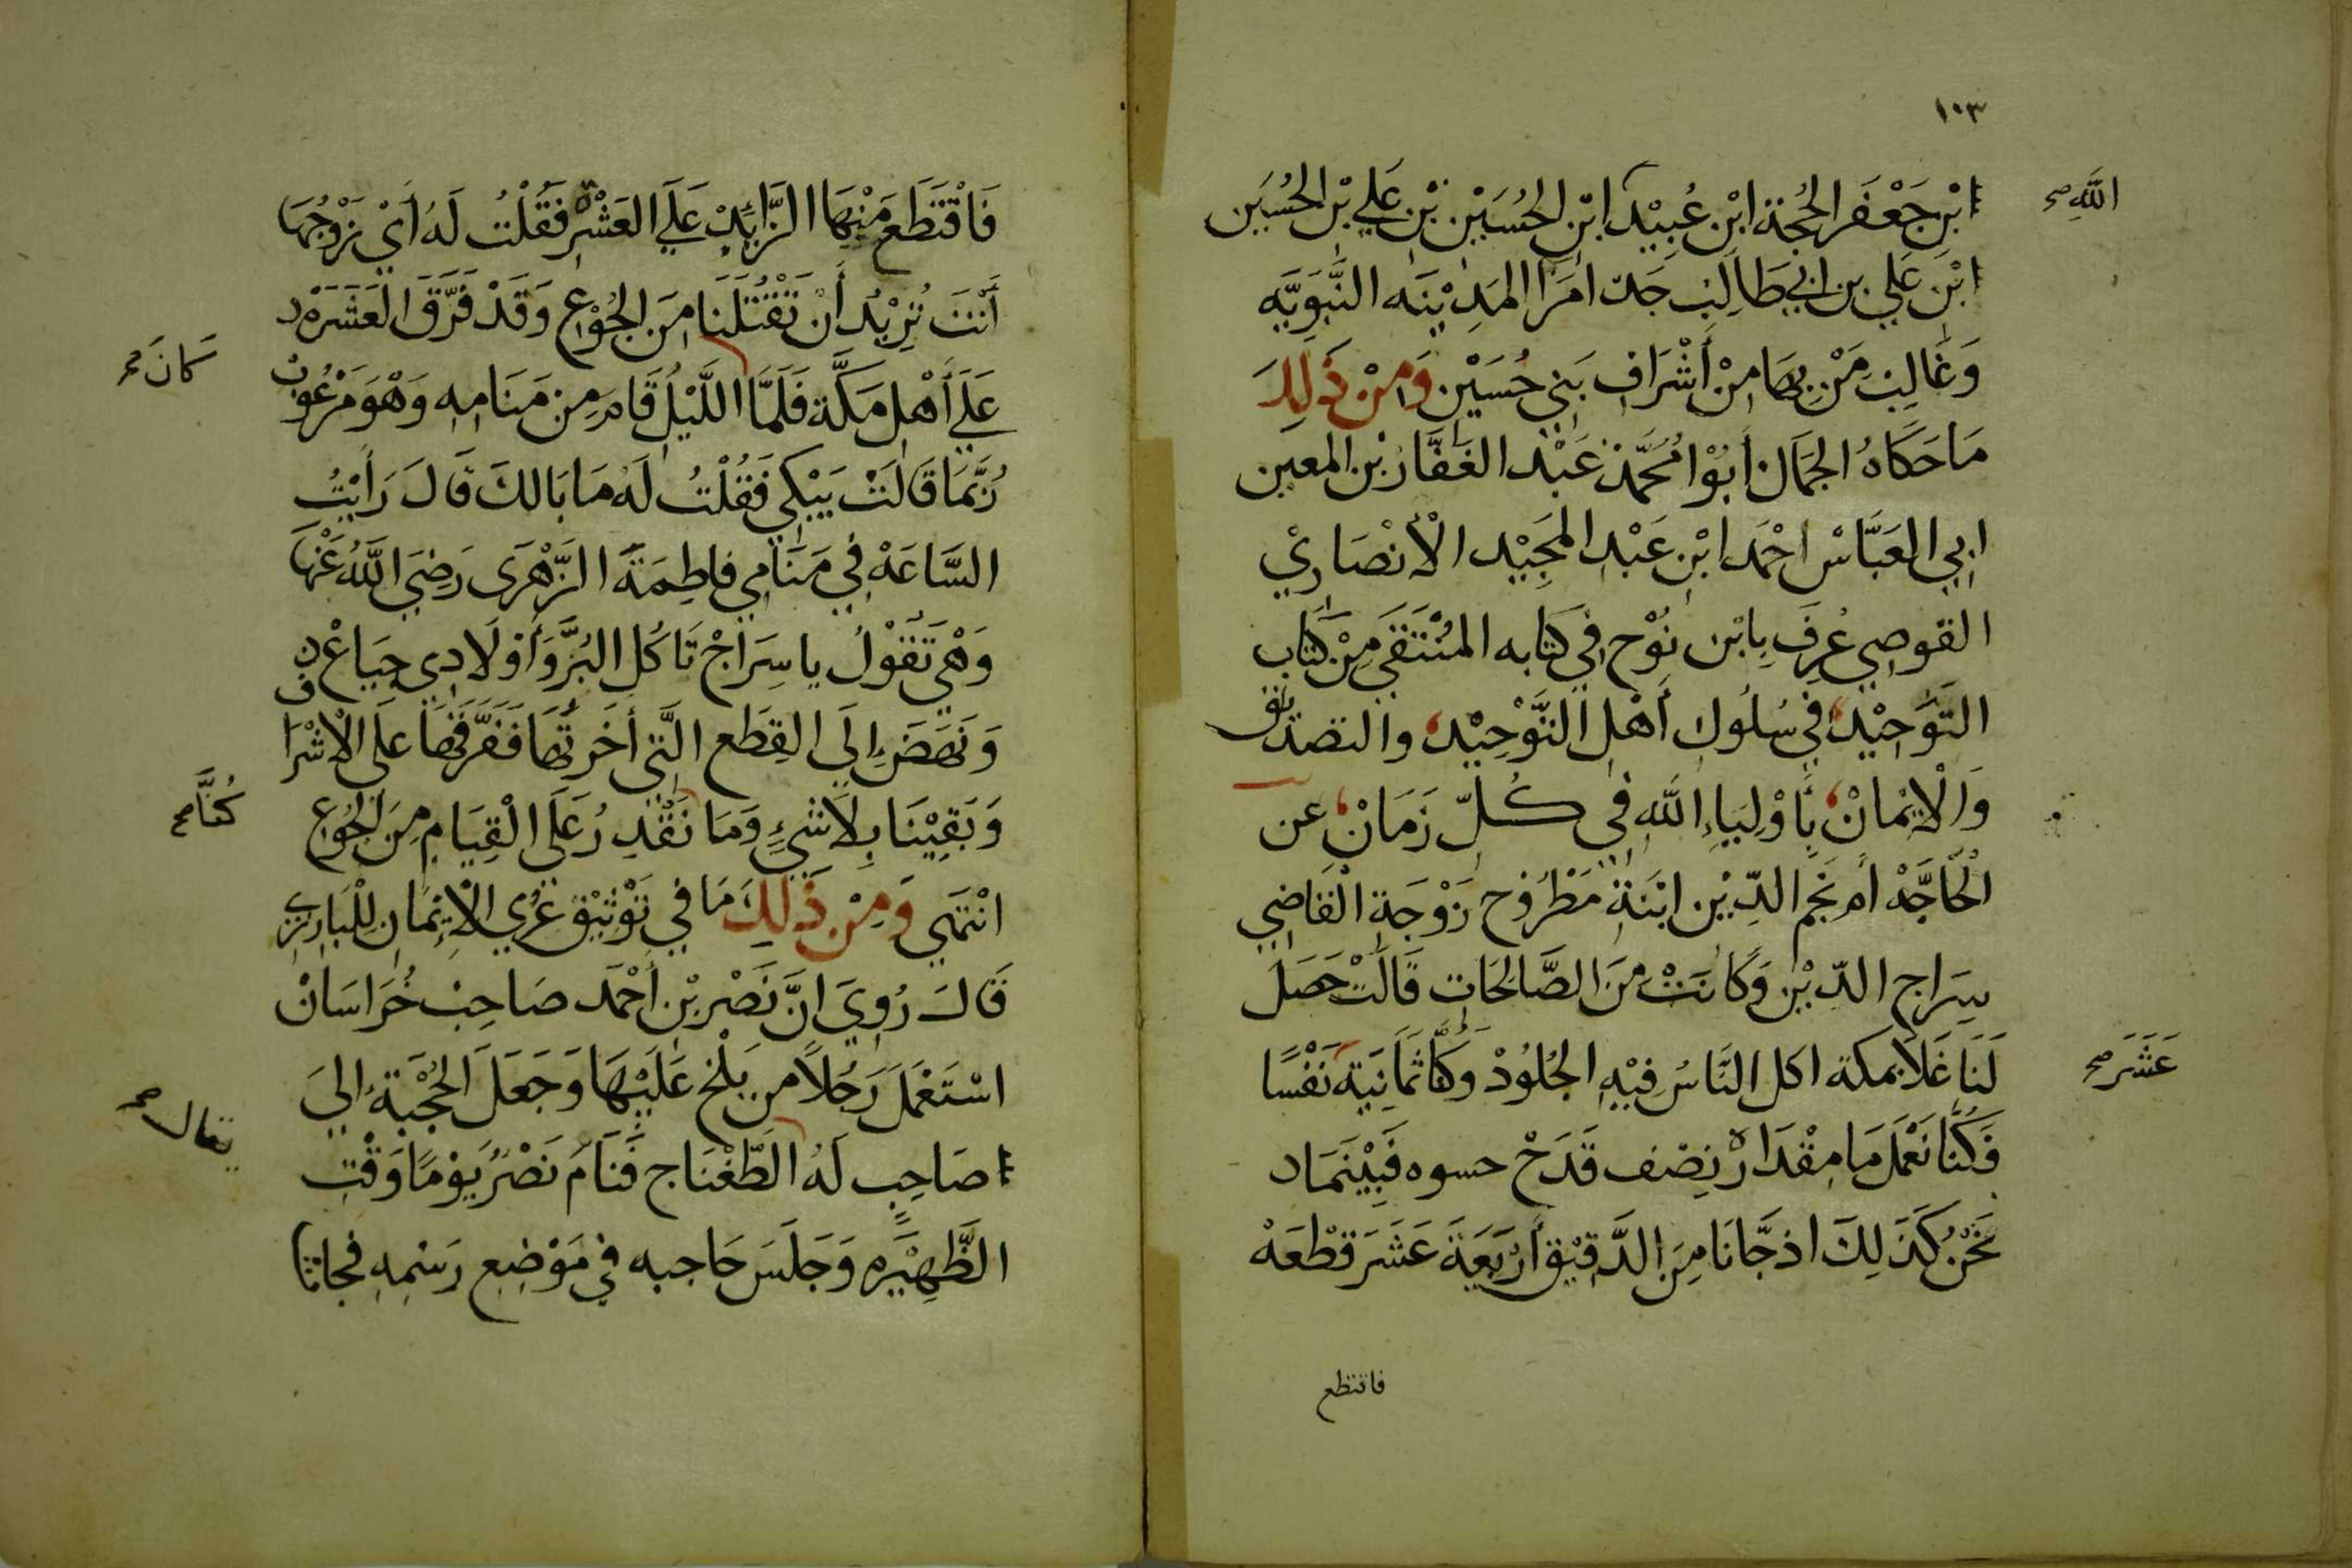 ١٠٣
ابْنِ جَعْفَر الحُجة ابْن عُبِيْد ابْن الحُسَيْن بْن عَلي بْن الحُسَين
الله صح
ابْنِ عَلي بن ابي طَالِب جَد امَرَا المَدِيْنَه النَّبَوِيَّه
وَغَالِب مَنْ بِهَا مِنْ أَشْرَاف بَني حُسَيْن وَمِنْ ذَلِكَ
مَا حَكَاهُ الجَمَال أَبُوْا مُحَمَّد عَبْد الغَفَّار بْن المعين
ابي العَبَّاسْ احْمَد ابْن عَبْد المَجِيْد الْأنْصَارِيْ
القوصِي عُرِفَ بِابْن نُوْح فِي كِتَابه المُنْتَقَي مِنْ كِتَاب
التَّوَحِيْد في سُلُوك أَهْل التَّوْحِيْد والتصديق
وَالْاِيْمَانْ بِأَوْلِيَاءِ اللهِ في كُلّ زَمَانْ عن
الْحَاجَّهْ أم نَجْم الدِّيْن ابْنَة مَطْرُوْح زَوْجَة القَاضِي
سِرَاج الدّيْن وَكَانَتْ مِنَ الصَّالحَات قَالَتْ حَصَل
لَنَا غَلَا بمَكة اكل النَّاسُ فِيْهِ الجُلُوْدْ وَكُنَّا ثَمَانِيَة نَفْسًا
عَشَرَ صح
فَكُنَّا نَعْمَل مَا مِقْدَارْه نِصْف قَدَحْ حسوه فَبِيْنَمَاد
نَحْنُ كَذَلِكَ اذ جَّانَا مِنَ الدَّقِيْق أَرْبَعَةَ عَشَرَ قطْعَهْ
فاقتطع
فَاقْتَطَع مَنْهَا الزَّائِدْ عَلَي العَشْرة فَقُلْتُ لَهُ أَيْ زَوْجُهَا
أَنْتَ تُرِيْدُ أَنْ تَقْتُلَنَا مِنَ الجُوْع وَقَدْ فَرَّقَ العَشَرَهْ د
عَلَي أَهْل مَكَّة فَلَمَّا اللَّيْلُ قَامَ مِن مَنَامِه وَهْوَ مَرْعُوب
كَانَ صح
رُبَّمَا قَالَتْ يَبْكِي فَقُلْتُ لَهُ مَا بَالكَ قَالَ رَأَيْتُ
السَّاعَهْ فِي مَنَامِي فاطِمَةَ الزَّهْرَى رَضِيَ اللَّهُ عَنْهَا
وَهْي تَقُوْلُ يا سِرَاجْ تَاكُل البُرَّ وَأَوْلَادِي جِيَاعْ
وَنَهَضَ إِلَى القِطَع الَّتِي أخَرتُهَا فَفَرَّقَهَا عَلَى الْاشْرَاف
وَبَقِيْنَا بِلَا شَيْءٍ وَمَا نَقْدِرُ عَلَى الْقِيَامِ مِنَ الْجُوْعِ
كُنَّا صح
انْتَهَى وَمِنْ ذَلِكَ مَا فِي تَوْثِيْق عُرَي الْاِيْمَان لِلْبَارِزي
قَالَ رُوِيَ انَّ نَصْر بْن أَحْمَد صَاحِبْ خُرَاسَانْ
اسْتَعْمَلَ رَجُلاً من بَلْخ عَلَيْهَا وَجَعَلَ الحُجْبَة الي
صَاحِبٍ لَهُ الطَّغْنَاج فَنَامَ نَصْرٌ يَوْمًا وَقْت
يقال صح
الظَّهِيْرَه وَجَلَسَ حَاجبه في مَوْضِع رَسْمِهِ فجاتا